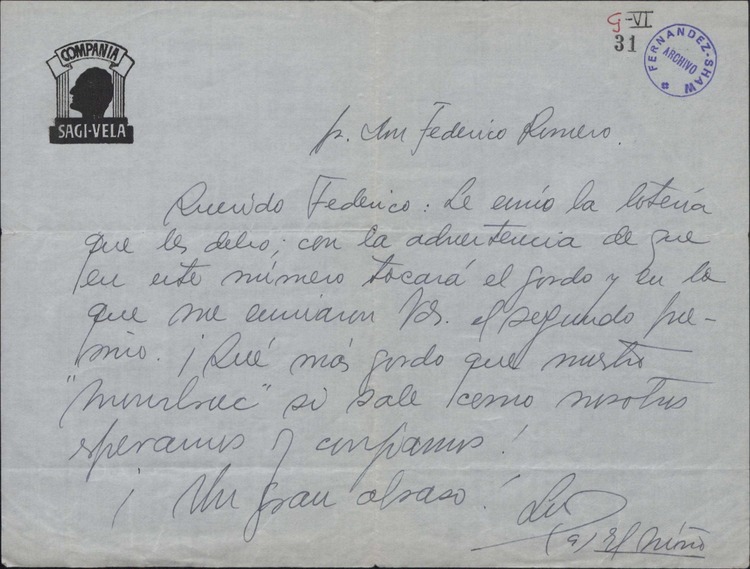 G-VI
31
FERNANDEZ-SHAW
ARCHIVO
COMPAÑIA
SAGI-VELA
Sr. Don Federico Romero.
Querido Federico: Le envío la lotería
que les debo; con la advertencia de que
en este número tocará el gordo y en la
que me enviaron Vds. el segundo pre-
mio. ¡Qué más gordo que nuestro
" " si sale como nosotros
esperamos y confiamos!
¡Un gran abrazo!
Luis
(a) El niño